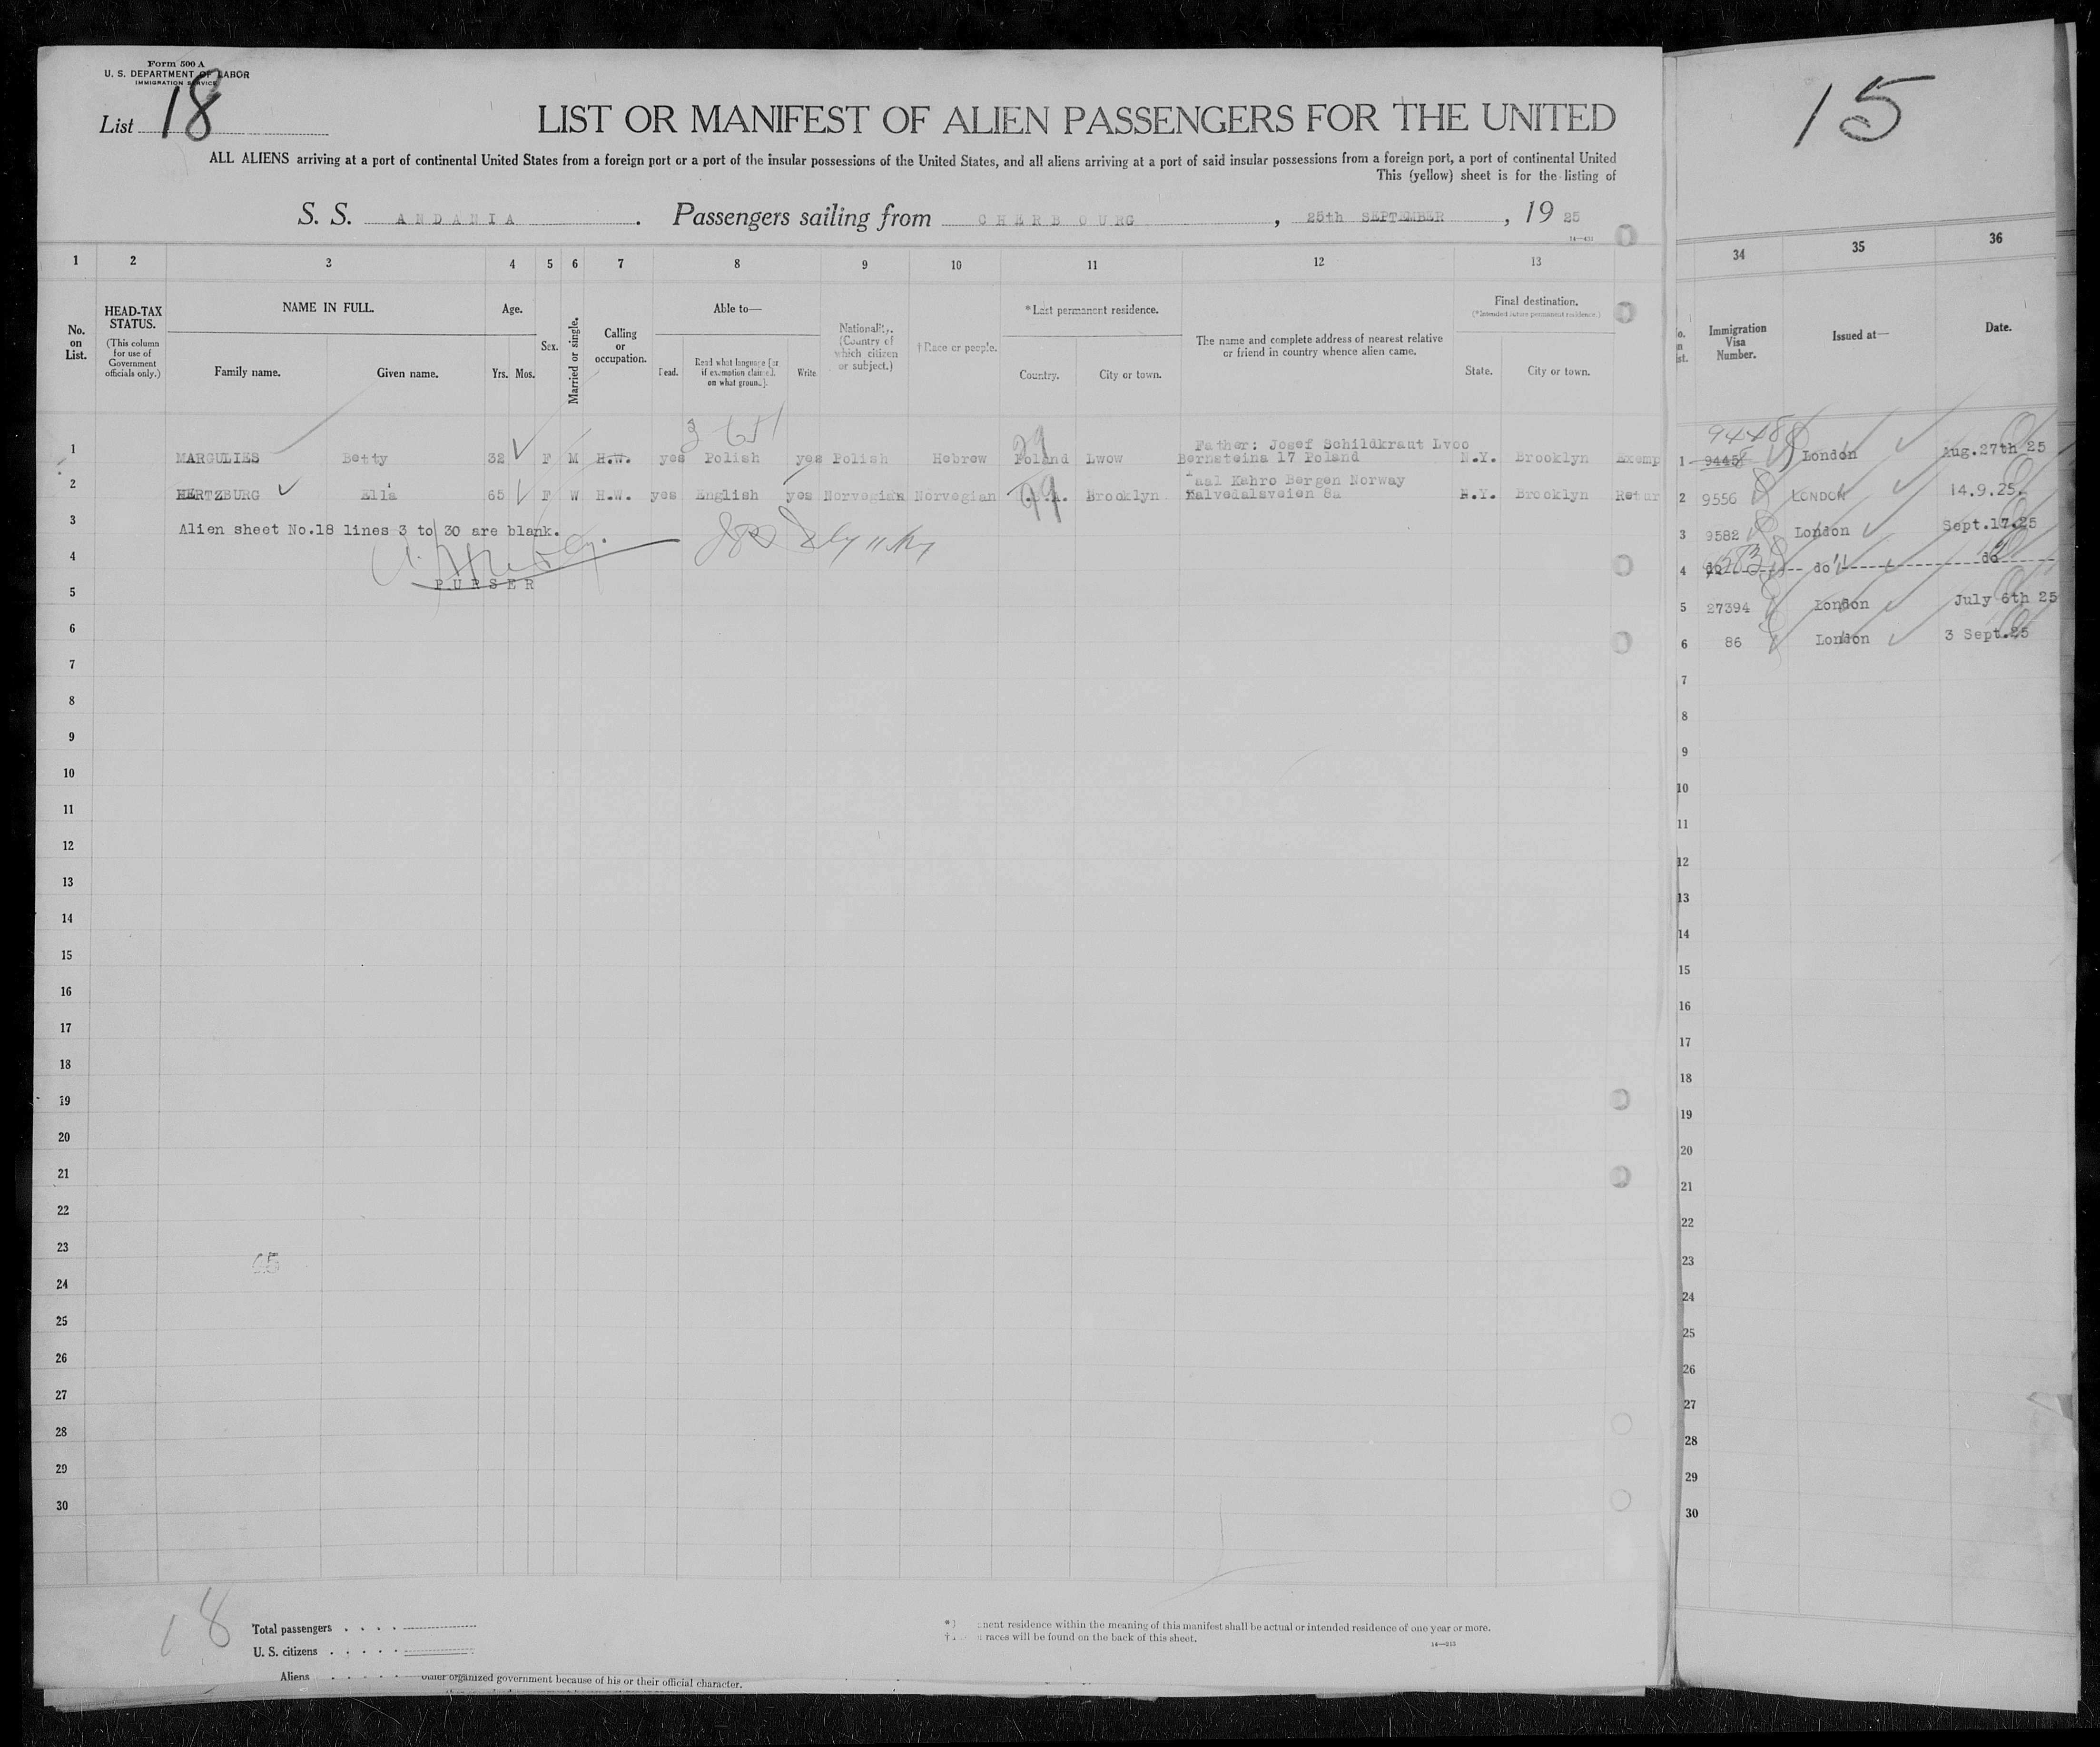 Form 500 A
U. S. DEPARTMENT OF LABOR
IMMIGRATION SERVICE
List 18
LIST OR MANIFEST OF ALIEN PASSENGERS FOR THE UNITED
ALL ALIENS arriving at a port of continental United States from a foreign port or a port of the insular possessions of the United States, and all aliens arriving at a port of said insular possessions from a foreign port, a port of continental United
This (yellow) sheet is for the listing of
S. S. ANDANIA. Passengers sailing from CHERBOURG, 25th SEPTEMBER, 19 25
14—431
1 2 3 4 5 6 7 8 9 10 11 12 13
No. on List.
HEAD-TAX STATUS.
(This column for use of Government officials only.)
NAME IN FULL.
Family name. Given name.
Age.
Yrs. Mos.
Sex.
Married or single.
Calling or occupation.
Able to—
Read. Read what language [or if exemption claimed, on what ground]. Write
Nationality. (Country of which citizen or subject.)
†Race or people.
*Last permanent residence.
Country. City or town.
The name and complete address of nearest relative or friend in country whence alien came.
Final destination.
(*Intended future permanent residence.)
State. City or town.
Father: Josef Schildkraut Lvoo
1 MARGULIES Betty 32 F M H.W. yes Polish yes Polish Hebrew Poland Lwow Bernsteina 17 Poland N.Y. Brooklyn Exemp
Kahro Bergen Norway
2 HERTZBURG Ella 65 F W H.W. yes English yes Norwegian Norwegian Brooklyn Kalvedalsveien 8a N.Y. Brooklyn Retur
3 Alien sheet No.18 lines 3 to 30 are blank.
4
PURSER
5
6
7
8
9
10
11
12
13
14
15
16
17
18
19
20
21
22
23
65
24
25
26
27
28
29
30
18
Total passengers
U. S. citizens
Aliens
other organized government because of his or their official character.
nent residence within the meaning of this manifest shall be actual or intended residence of one year or more.
races will be found on the back of this sheet.
14—213
15
34 35 36
Immigration Visa Number.
Issued at—
Date.
9448
1 9445 London Aug.27th 25
2 9556 LONDON 14.9.25.
3 9582 London Sept.17.25
4 do do do
5 27394 London July 6th 25
6 86 London 3 Sept.25
7
8
9
10
11
12
13
14
15
16
17
18
19
20
21
22
23
24
25
26
27
28
29
30